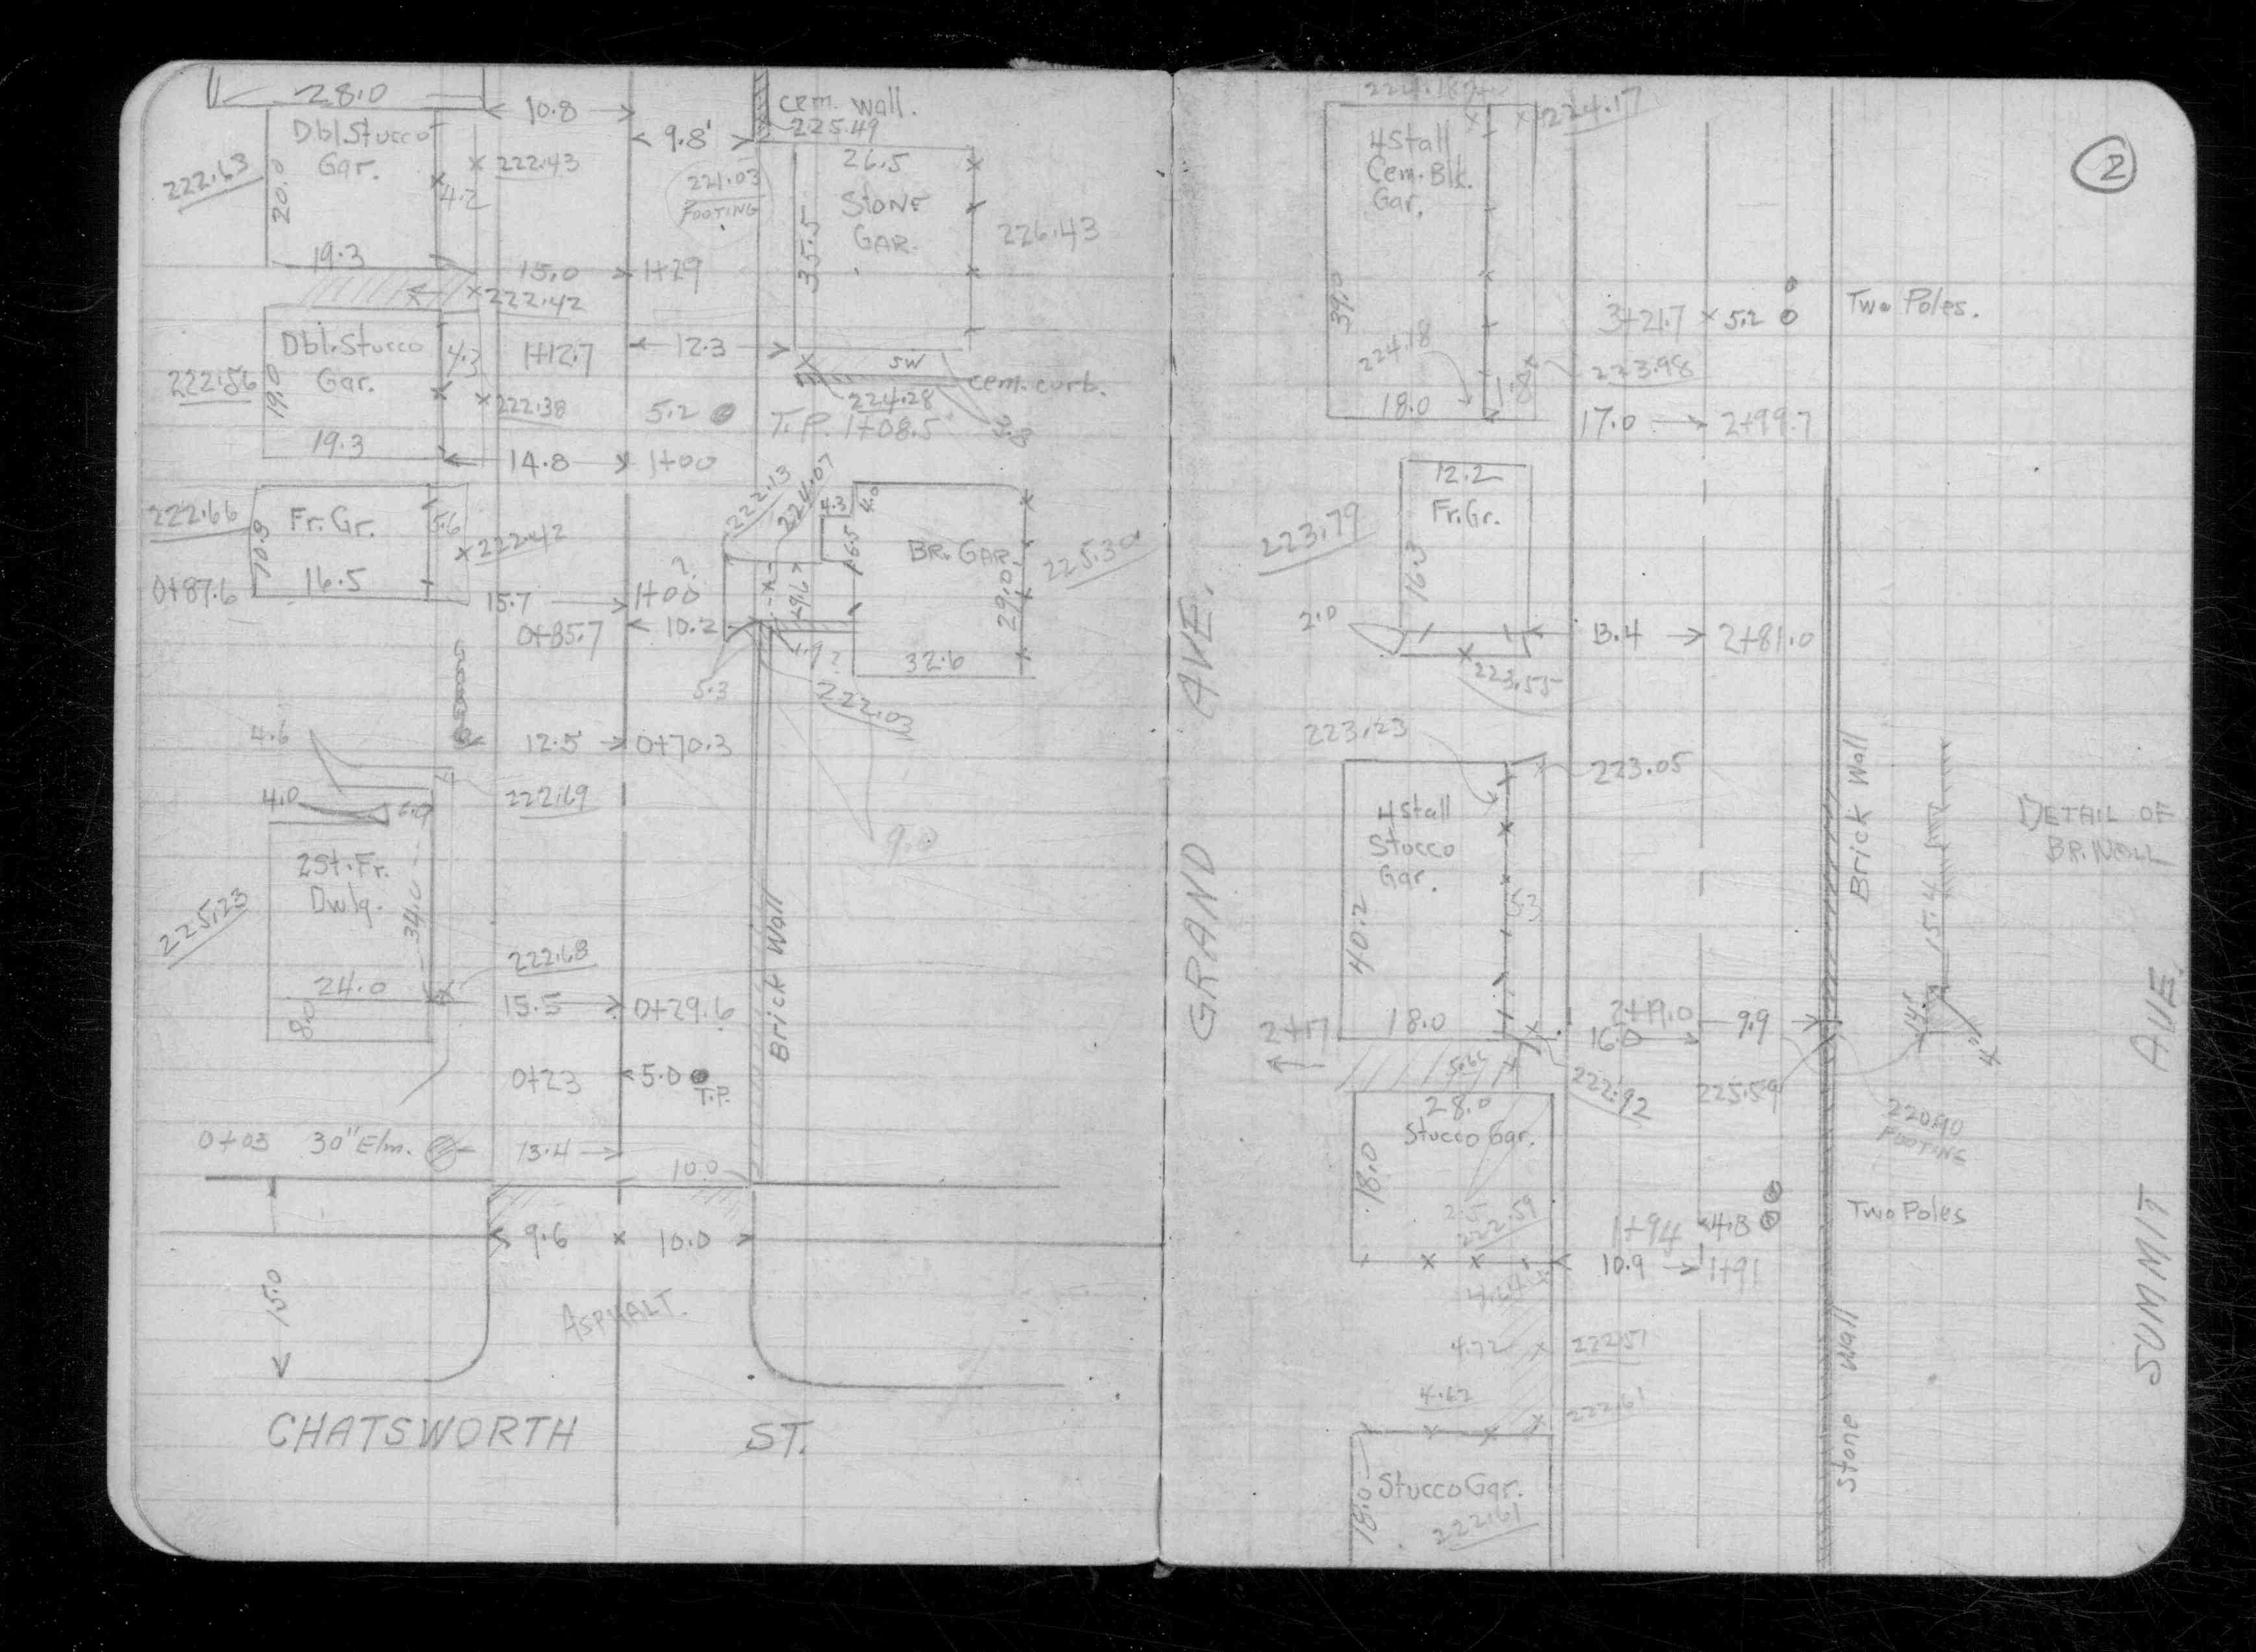 28.0
10.8
cem. wall.
225.49
9.8'
Dbl. Stucco
Gar.
222.63
20.0
4.2
222.43
221.03
FOOTING
26.5
STONE
GAR.
35.5
226.43
19.3
15.0
1+29
222.42
Dbl. Stucco
Gar.
4.3
1+12.7
12.3
SW
cem. curb.
222.56
19.0
222.38
5.2
224.28
T.P. 1+08.5
3.8
19.3
14.8
1+00
222.13
224.07
4.3
4.0
222.66
10.9
Fr. Gr.
5.6
222.42
6.5
BR. GAR.
225.30
16.5
0+87.6
15.7
1+00
?
9.6
29.0
0+85.7
10.2
1.9?
32.6
5.3
222.03
12.5
0+70.3
4.6
4.0
6.0
222.69
9.0
2St. Fr.
Dwlg.
34.0
225.23
24.0
222.68
8.0
15.5
0+29.6
Brick Wall
0+23
5.0
T.P.
0+03
30" Elm.
13.4
10.0
9.6
10.0
15.0
ASPHALT.
CHATSWORTH ST.
2
224.17
4 Stall
Cem. Blk.
Gar.
39.0
3+21.7
5.2
Two Poles.
224.18
223.98
1.8
18.0
17.0
2+99.7
12.2
Fr. Gr.
223.79
16.3
2.0
13.4
2+81.0
223.55
GRAND AVE.
223.23
223.05
4 Stall
Stucco
Gar.
5.3
40.2
Brick Wall
15.4
DETAIL OF
BR. WALL
2+17
18.0
2+19.0
16.0
9.9
.14
4"
5.65
222.92
225.59
220.90
FOOTING
28.0
Stucco Gar.
18.0
222.59
1+94
4.8
Two Poles
10.9
1+91
4.64
4.72
222.51
4.62
222.61
Stucco Gar.
18.0
222.61
Stone Wall
SUMMIT AVE.